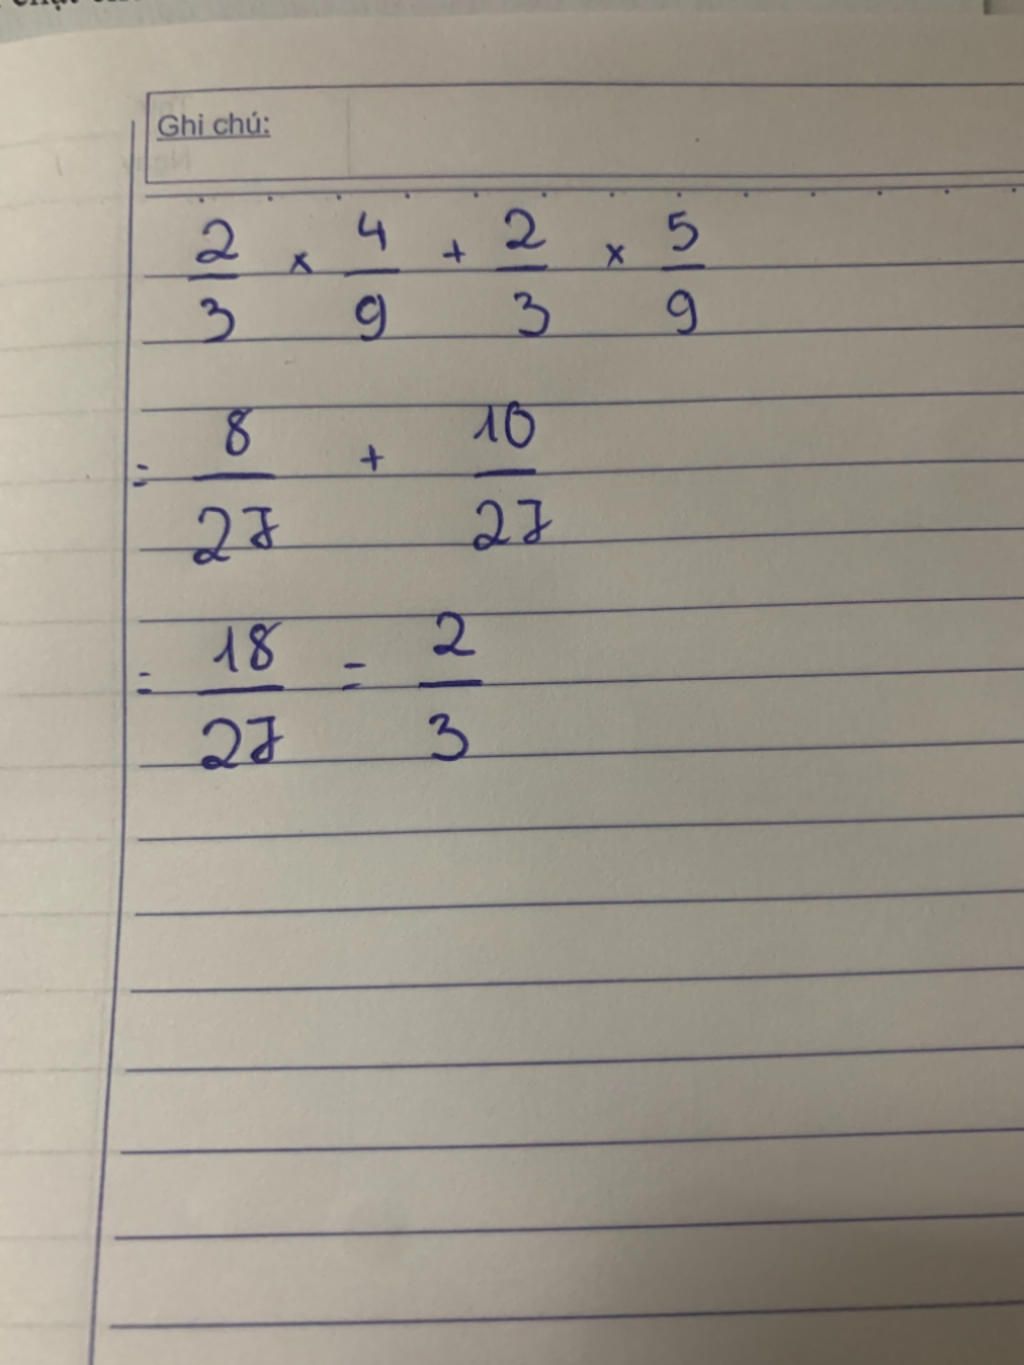 Ghi chú:
2/3 × 4/9 + 2/3 × 5/9
= 8/27 + 10/27
= 18/27 = 2/3